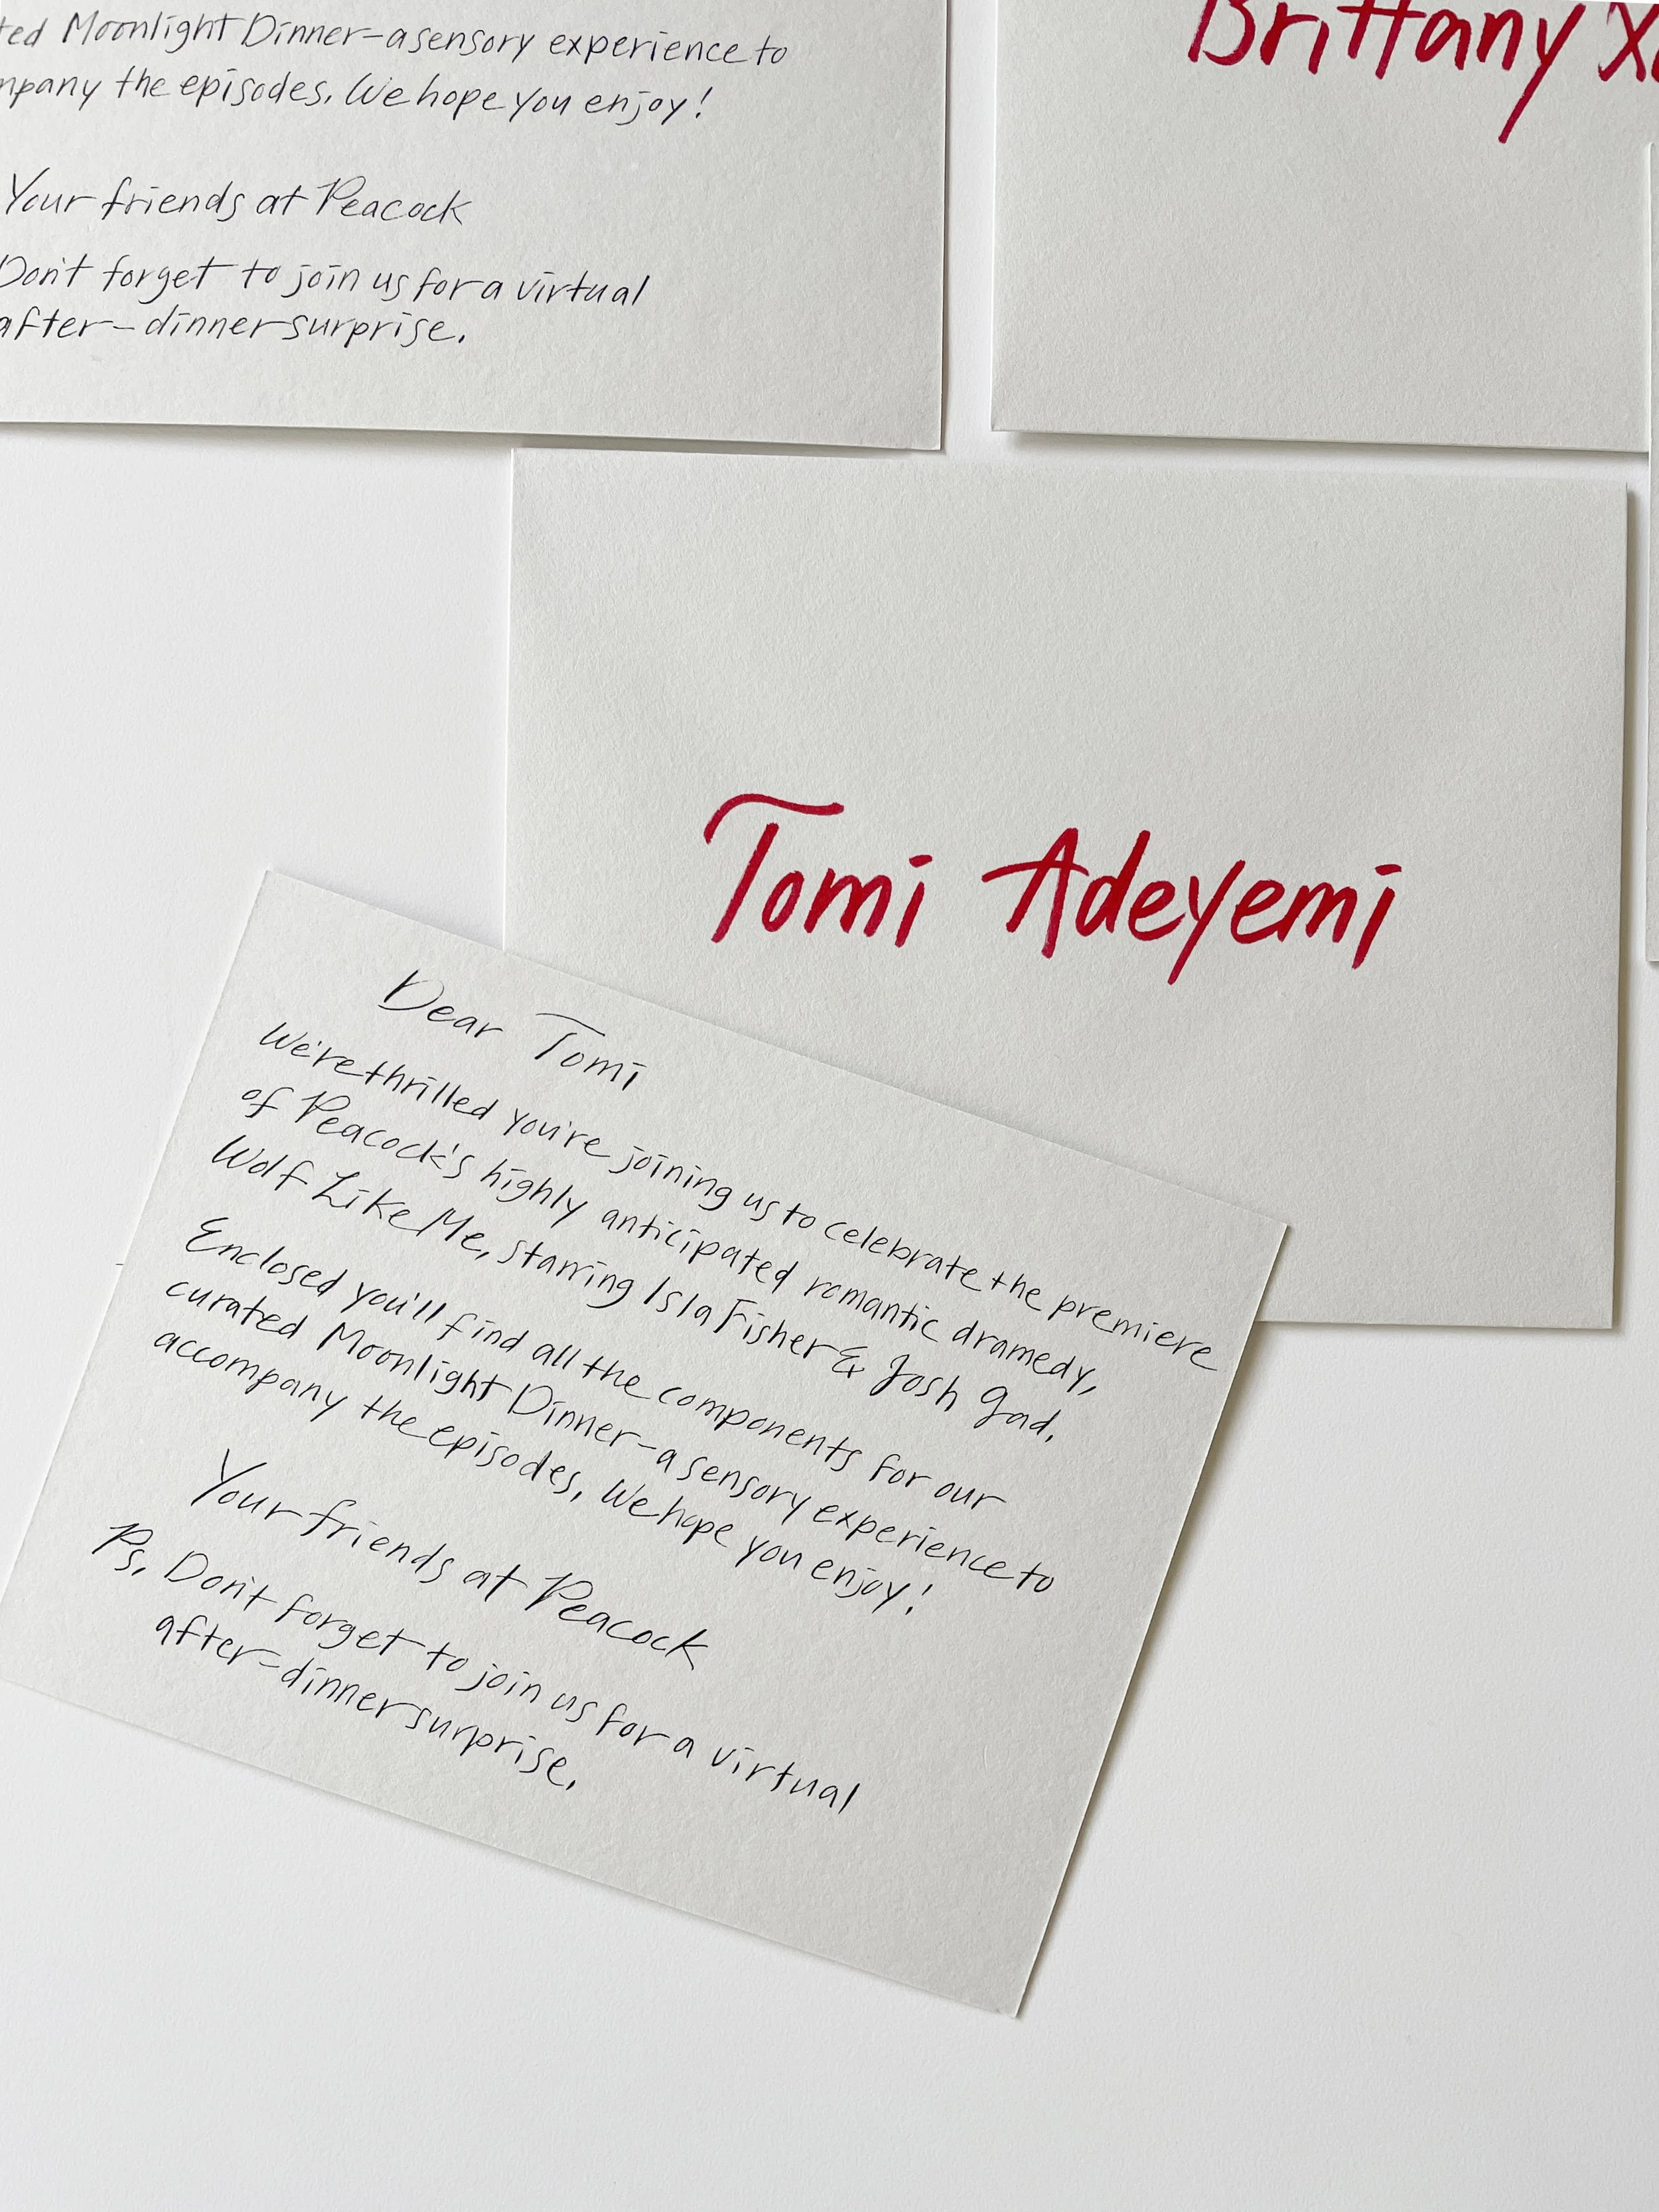 Moonlight Dinner-a sensory experience to
the episodes. We hope you enjoy!
Your friends at Peacock
Don't forget to join us for a virtual
after-dinner surprise.
Brittany
Tomi Adeyemi
Dear Tomi
We're thrilled you're joining us to celebrate the premiere
of Peacock's highly anticipated romantic dramedy,
Wolf Like Me, starring Isla Fisher & Josh Gad.
Enclosed you'll find all the components for our
curated Moonlight Dinner-a sensory experience to
accompany the episodes. We hope you enjoy!
Your friends at Peacock
Ps. Don't forget to join us for a virtual
after-dinner surprise.